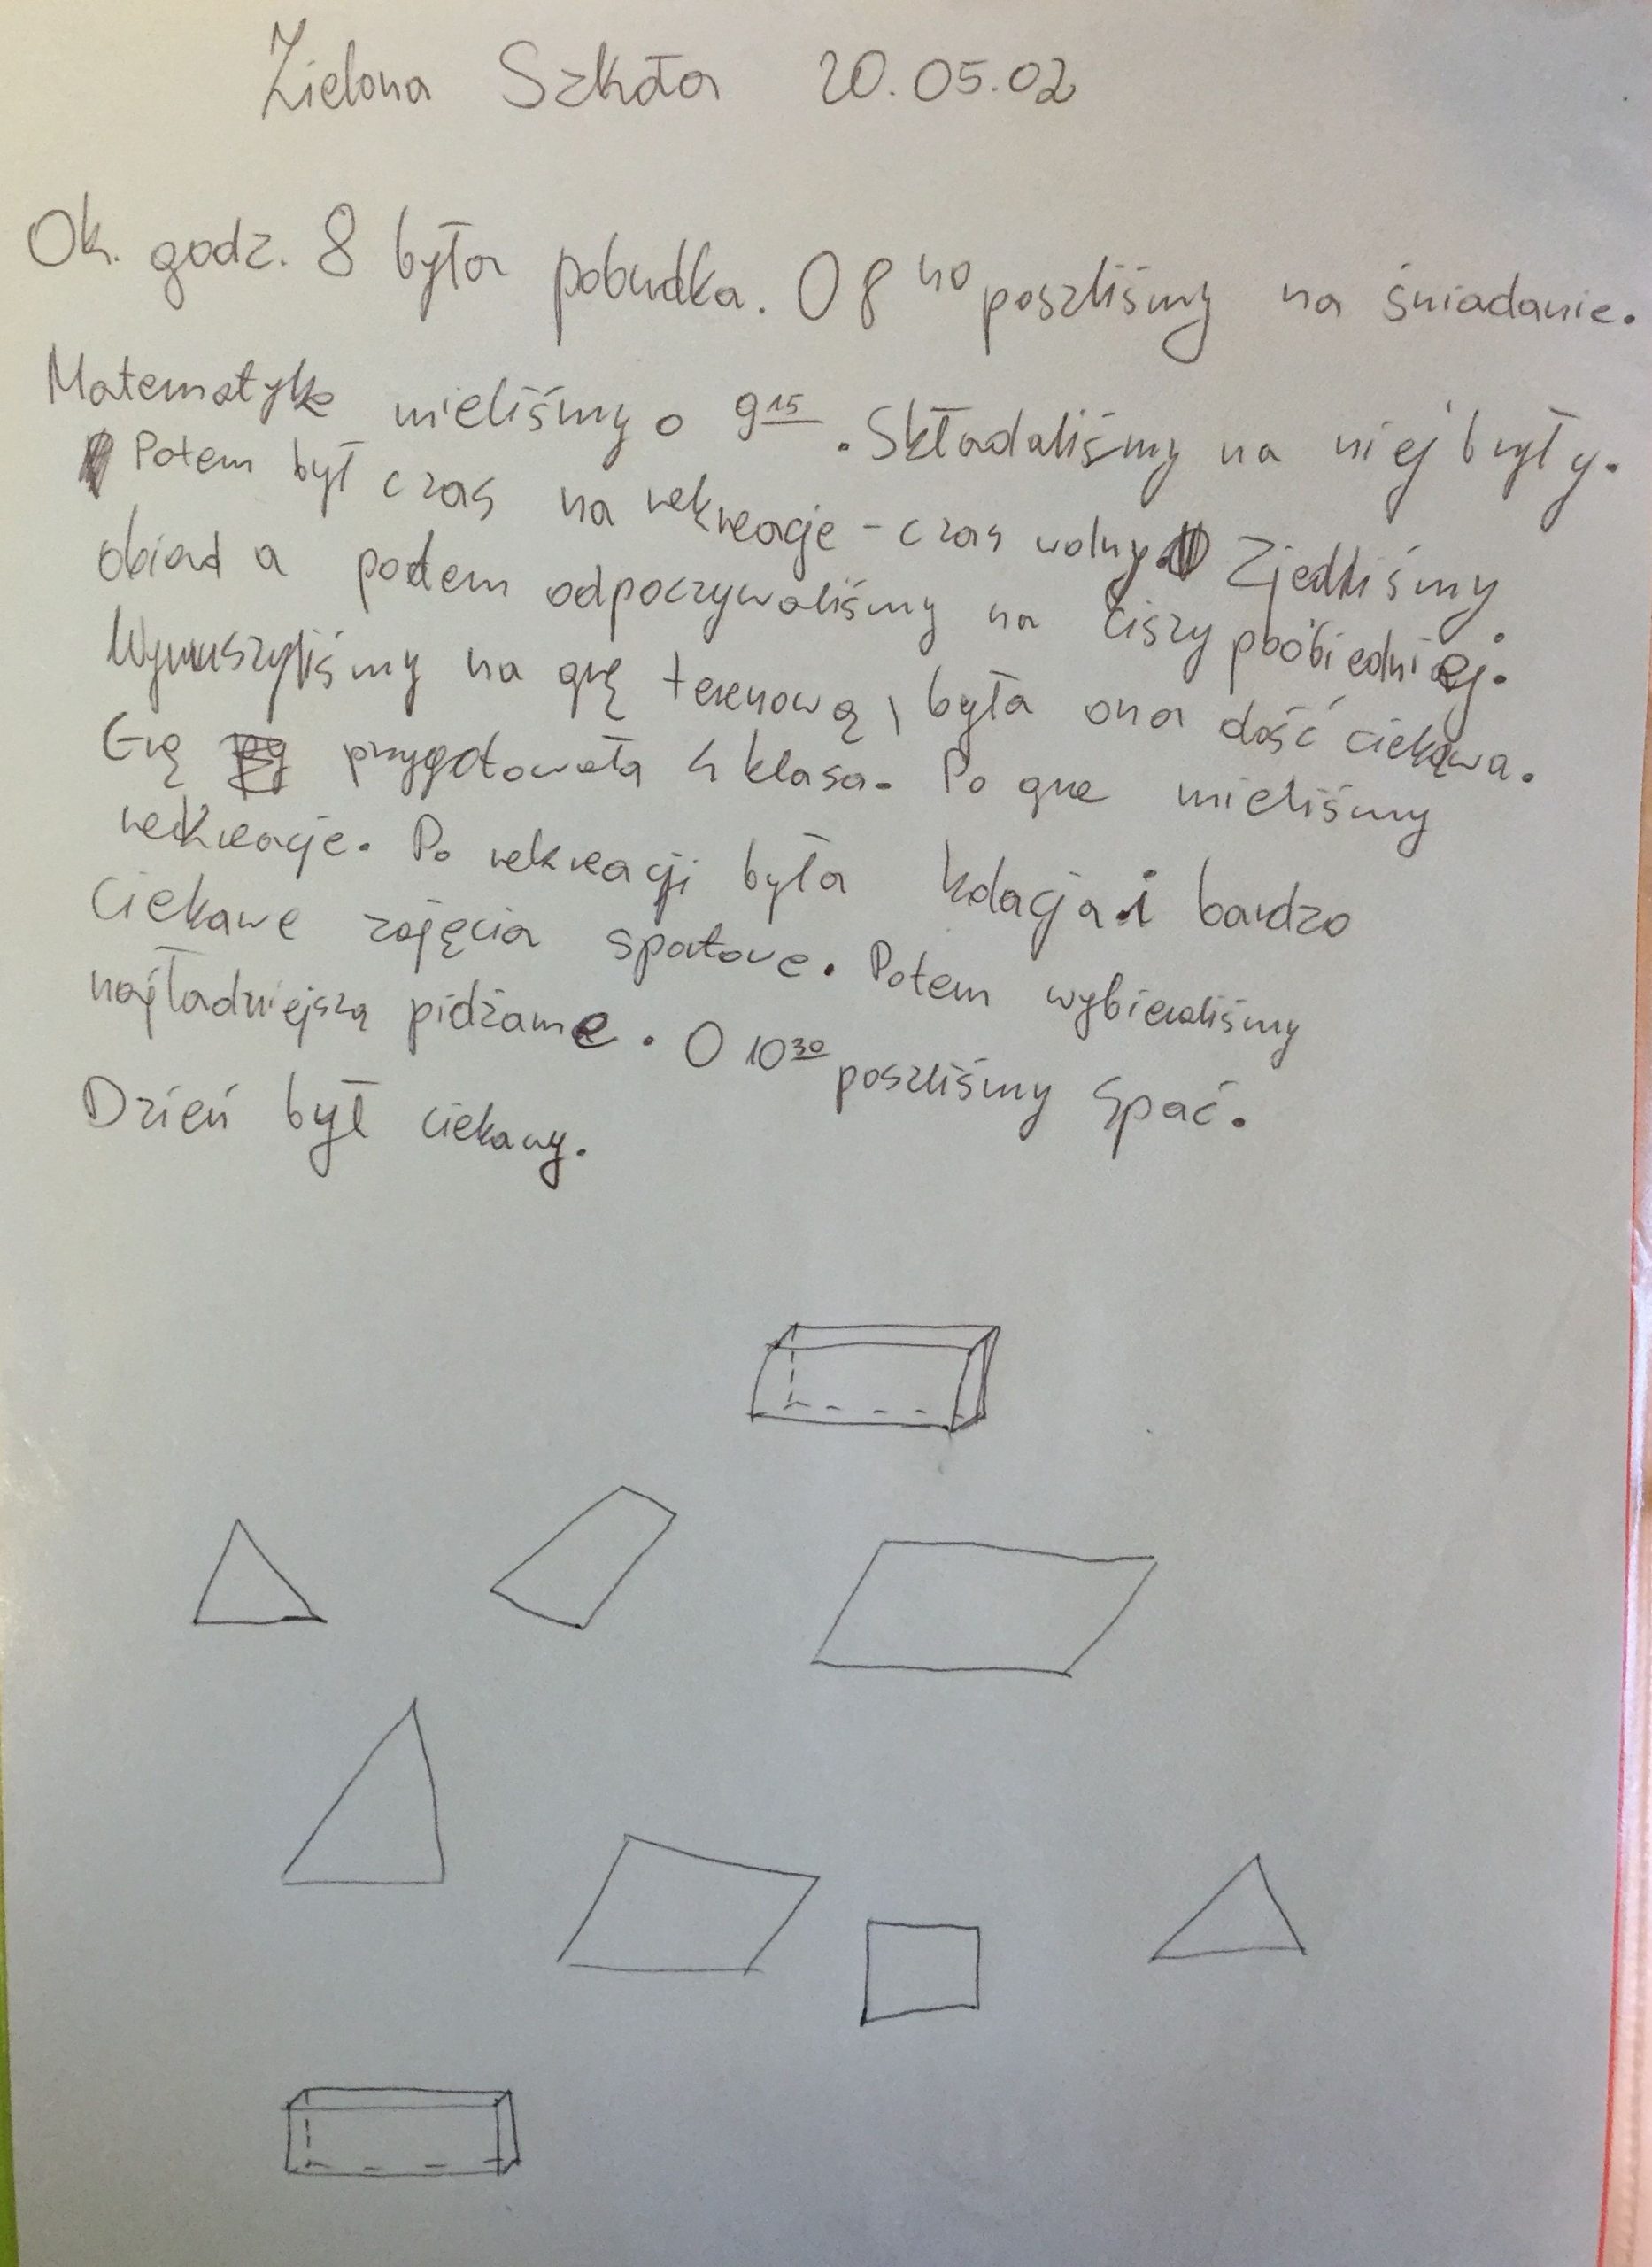 Zielona Szkoła 20.05.02
Ok. godz. 8 była pobudka. O 8 40 poszliśmy na śniadanie.
Matematykę mieliśmy o 9 15. Składaliśmy na niej bryły.
Potem był czas na rekreacje - czas wolny. Zjedliśmy
obiad a potem odpoczywaliśmy na ciszy poobiedniej.
Wymuszyliśmy na grę terenową, była ona dość ciekawa.
Grę przygotowała 4 klasa. Po grze mieliśmy
rekreacje. Po rekreacji była kolacja i bardzo
ciekawe zajęcia sportowe. Potem wybieraliśmy
najładniejszą pidżame. O 10 30 poszliśmy spać.
Dzień był ciekawy.